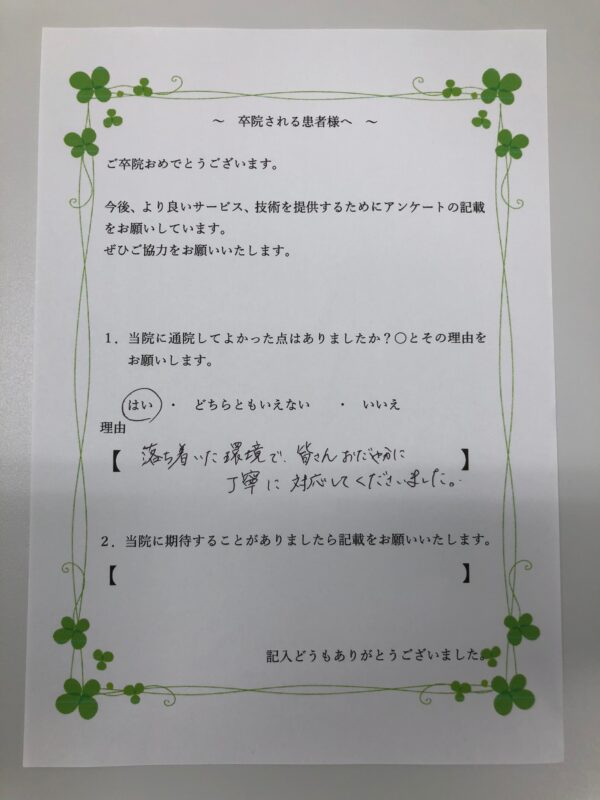 ～ 卒院される患者様へ ～
ご卒院おめでとうございます。
今後、より良いサービス、技術を提供するためにアンケートの記載
をお願いしています。
ぜひご協力をお願いいたします。
１．当院に通院してよかった点はありましたか？〇とその理由を
お願いします。
はい ・ どちらともいえない ・ いいえ
理由
【 落ち着いた環境で、皆さんおだやかに 】
丁寧に対応してくださいました。
２．当院に期待することがありましたら記載をお願いいたします。
【 】
記入どうもありがとうございました。